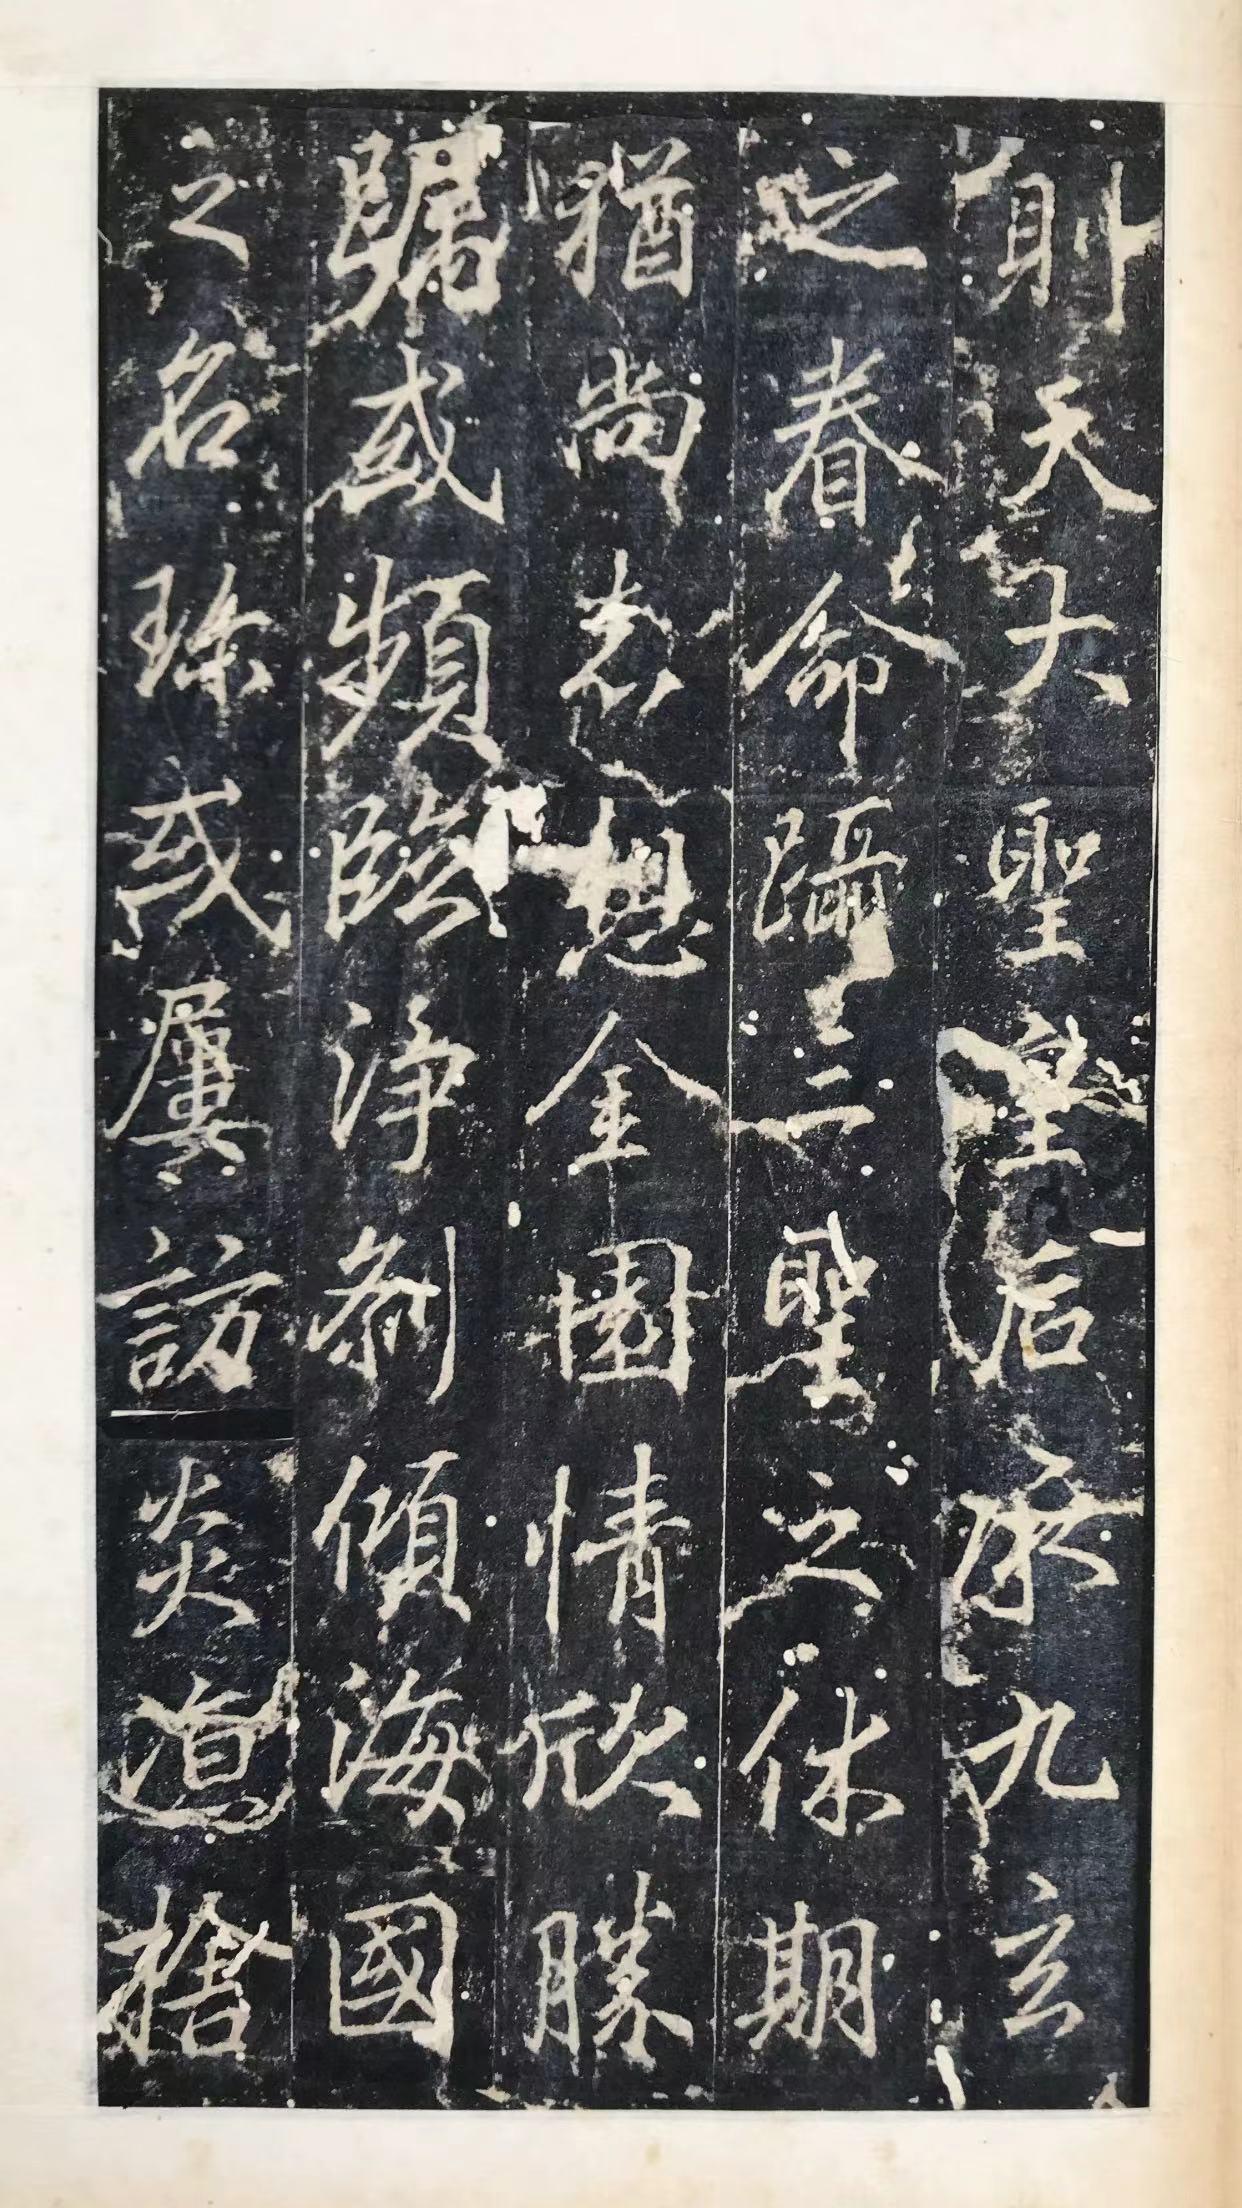 則天大聖皇后承九玄
之眷命躡三聖之休期
猶尚志想金園情欣勝
躅或頻臨淨刹傾海國
之名珍或屢訪炎道捨